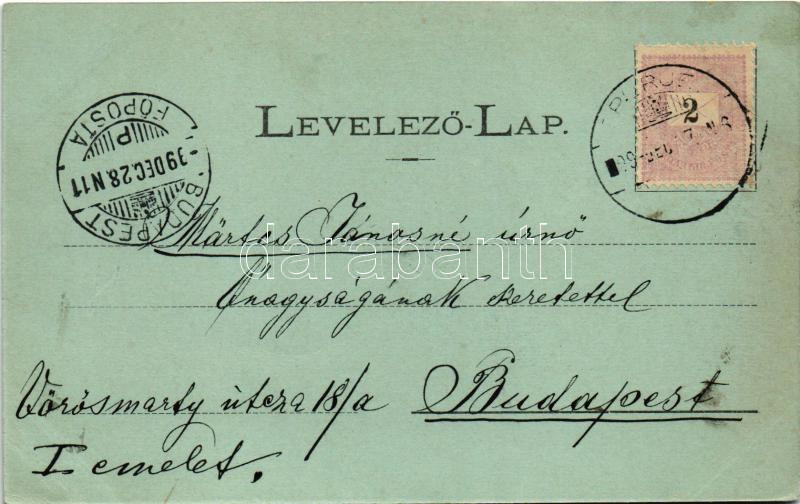 LEVELEZŐ-LAP.
2
BUDAPEST
FŐPOSTA
P
99 DEC. 28. N 11
Mártos Jánosné úrnő
Őnagyságának szeretettel
Vörösmarty útcza 18/a Budapest
I emelet.
darabanth